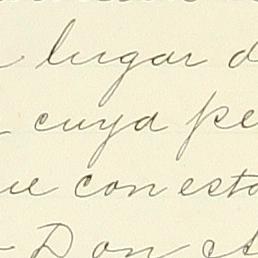 lugar d
cuya pe
ue con esta
Don A